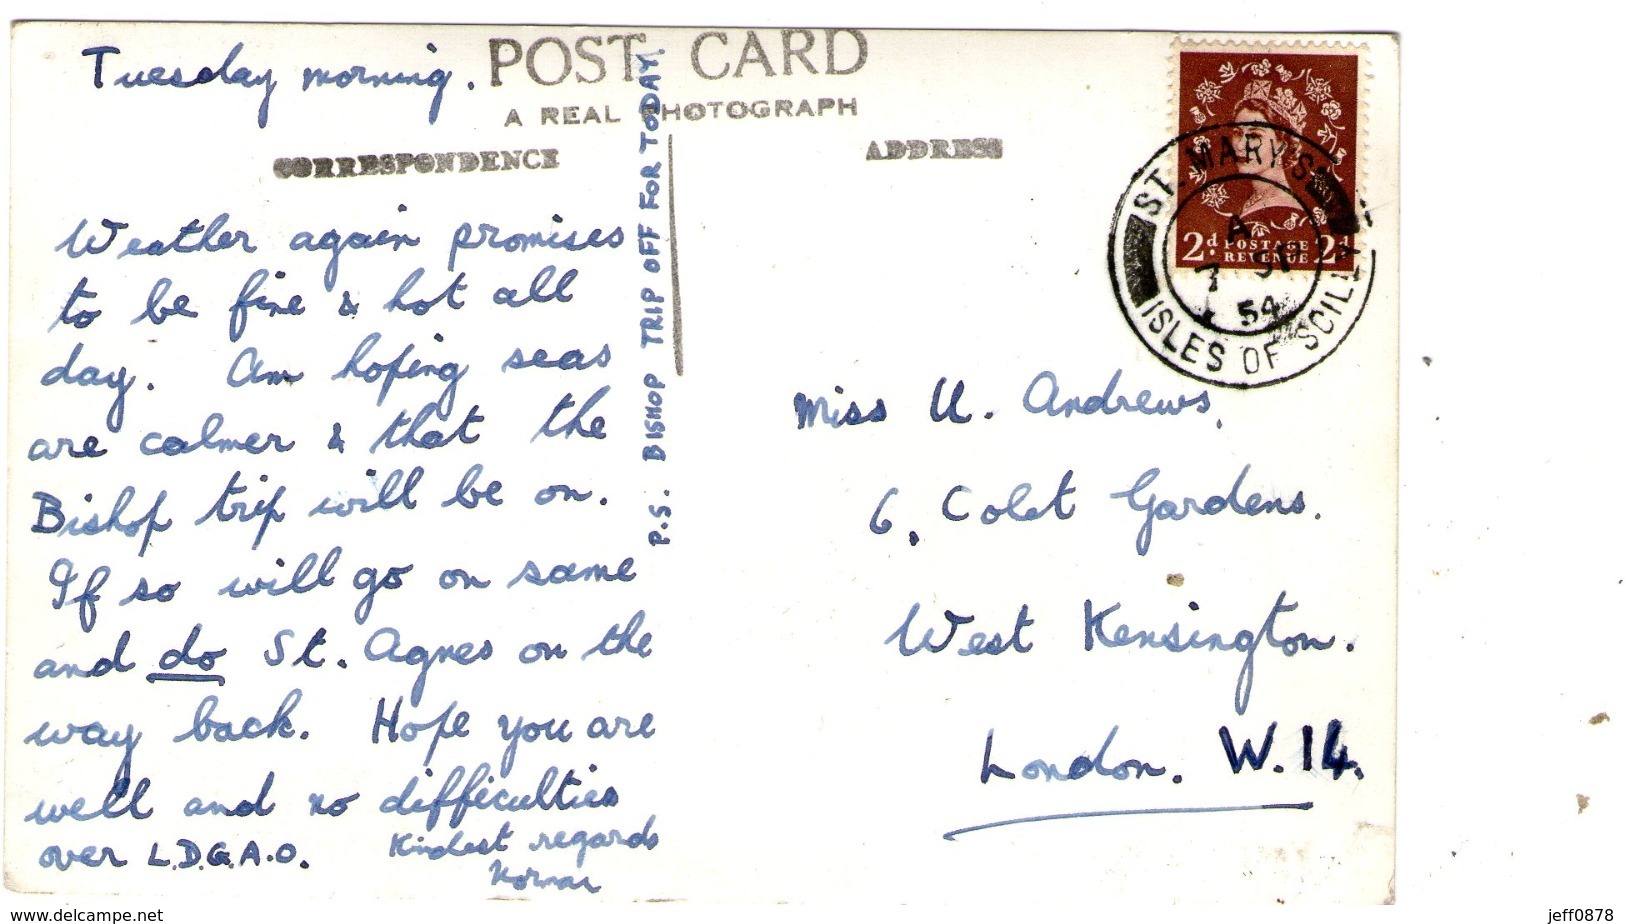 Tuesday morning.
POST CARD
A REAL PHOTOGRAPH
CORRESPONDENCE
ADDRESS
Weather again promises
to be fine & hot all
day. Am hoping seas
are calmer & that the
Bishop trip will be on.
If so will go on same
and do St. Agnes on the
way back. Hope you are
well and no difficulties
over L.D.G.A.O.
Kindest regards
Norman
P.S. BISHOP TRIP OFF FOR TODAY.
ST. MARY'S
A
7 SP
54
ISLES OF SCILLY
2d. POSTAGE 2d.
REVENUE
Miss U. Andrews,
6, Colet Gardens.
West Kensington.
London. W.14.
www.delcampe.net
jeff0878